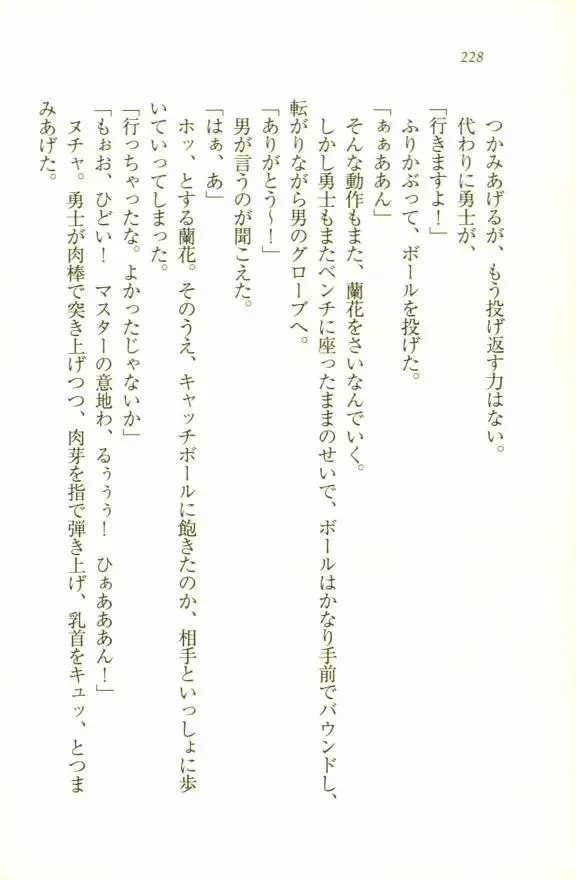 228
つかみあげるが、もう投げ返す力はない。
代わりに勇士が、
「行きますよ！」
ふりかぶって、ボールを投げた。
「ぁぁああん」
そんな動作もまた、蘭花をさいなんでいく。
しかし勇士もまたベンチに座ったままのせいで、ボールはかなり手前でバウンドし、
転がりながら男のグローブへ。
「ありがとう〜！」
男が言うのが聞こえた。
「はぁ、あ」
ホッ、とする蘭花。そのうえ、キャッチボールに飽きたのか、相手といっしょに歩
いていってしまった。
「行っちゃったな。よかったじゃないか」
「もぉお、ひどい！　マスターの意地わ、るぅぅう！　ひぁあああん！」
ヌチャ。勇士が肉棒で突き上げつつ、肉芽を指で弾き上げ、乳首をキュッ、とつま
みあげた。